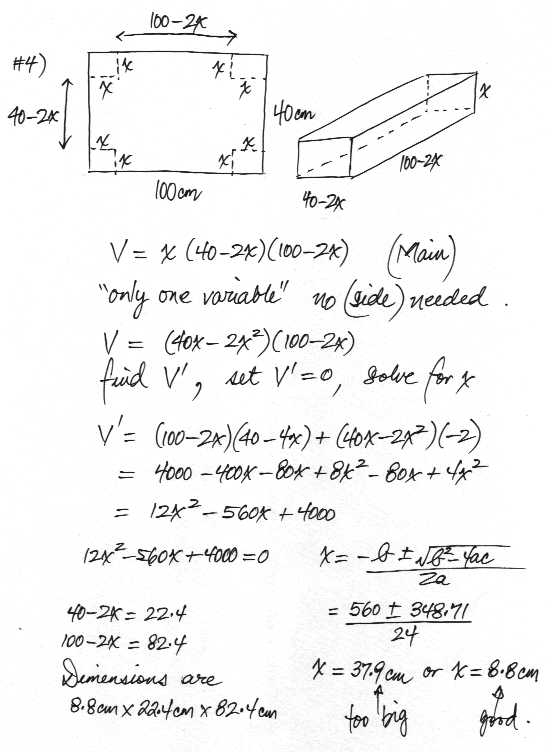 100-2x
#4)
x x
x x
40-2x
40cm
x
x x
x x
100-2x
100cm
40-2x
V = x (40-2x)(100-2x) (Main)
"only one variable" no (side) needed.
V = (40x - 2x²)(100-2x)
find V', set V'=0, solve for x
V' = (100-2x)(40-4x) + (40x-2x²)(-2)
= 4000 - 400x - 80x + 8x² - 80x + 4x²
= 12x² - 560x + 4000
12x² - 560x + 4000 = 0
x = -b ± √b²-4ac
2a
40-2x = 22.4
= 560 ± 348.71
24
100-2x = 82.4
Dimensions are
x = 37.9cm or x = 8.8cm
8.8cm x 22.4cm x 82.4cm
too big good.